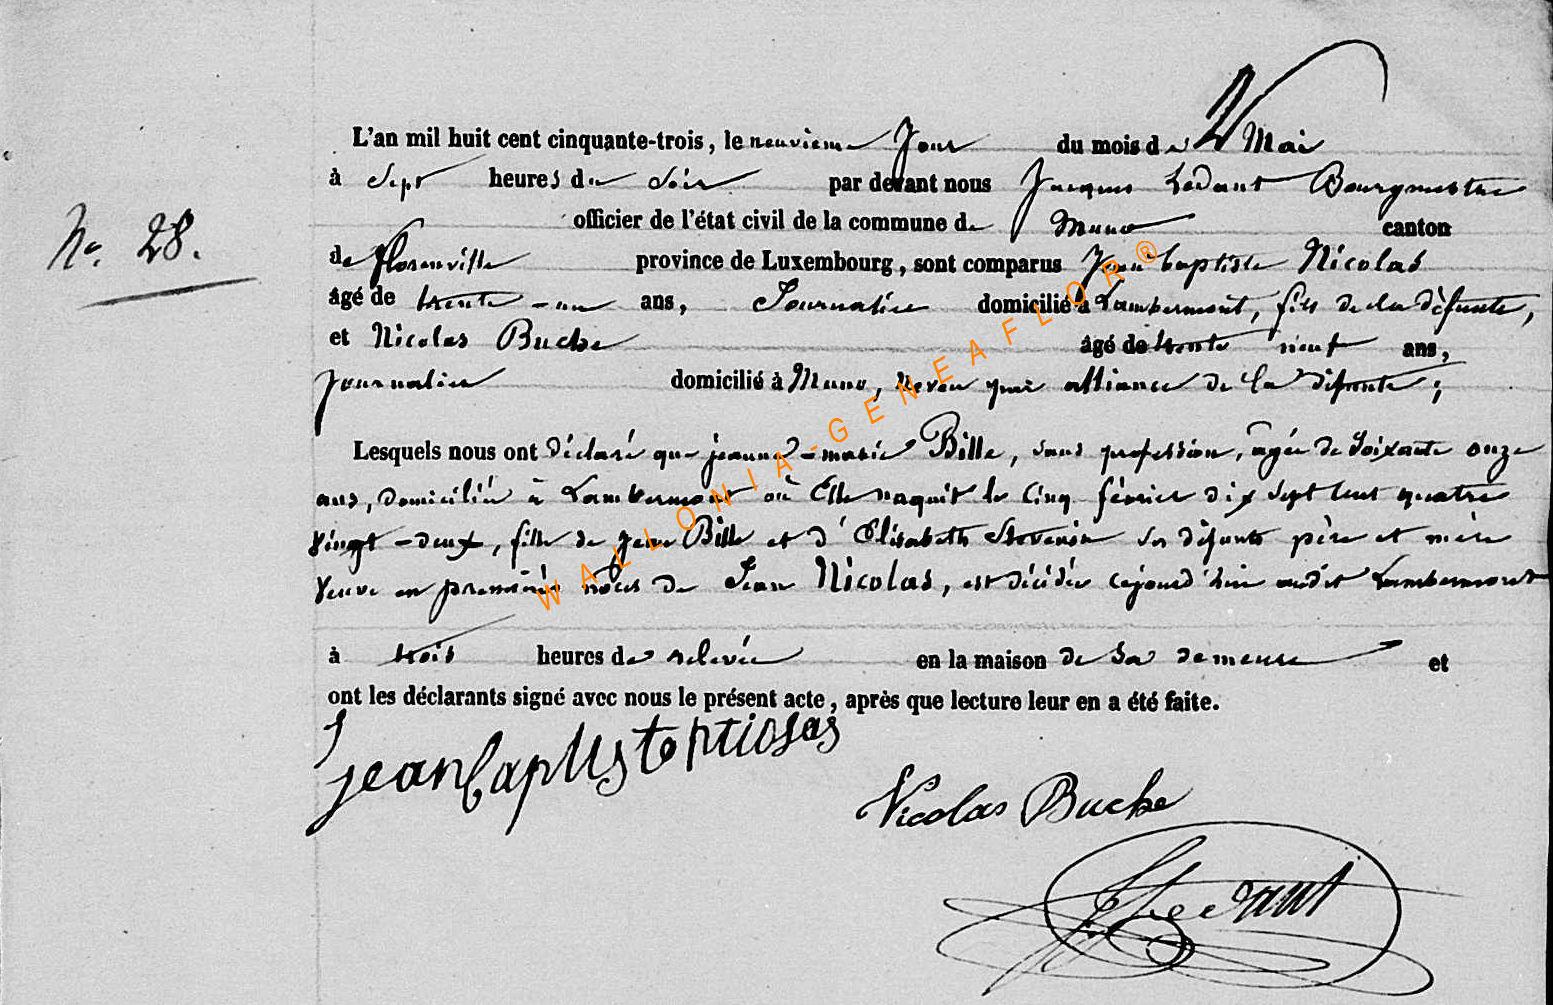 L'an mil huit cent cinquante-trois, le neuvième Jour du mois de Mai
à Sept heures du soir par devant nous Jacques Ledant Bourgmestre
officier de l'état civil de la commune de Muno canton
de florenville province de Luxembourg, sont comparus Jean baptiste Nicolas
No. 28.
âgé de trente-un ans, Journalier domicilié à Lambermont, fils de la défunte,
et Nicolas Buche âgé de trente neuf ans,
journalier domicilié à Muno, neveu par alliance de la défunte;
Lesquels nous ont déclaré que jeanne-marie Bille, sans profession, agée de soixante onze
ans, domiciliée à Lambermont où Elle naquit le cinq février dix sept cent quatre
vingt-deux, fille de Jean Bille et d'Elisabeth Stevenin ses défunts père et mère
veuve en premières noces de Jean Nicolas, est décédée cejourd'hui audit Lambermont
à trois heures de relevée en la maison de sa demeure et
ont les déclarants signé avec nous le présent acte, après que lecture leur en a été faite.
jean baptiste
Nicolas Buche
Ledant
WALLONIA-GENEAFLOR®